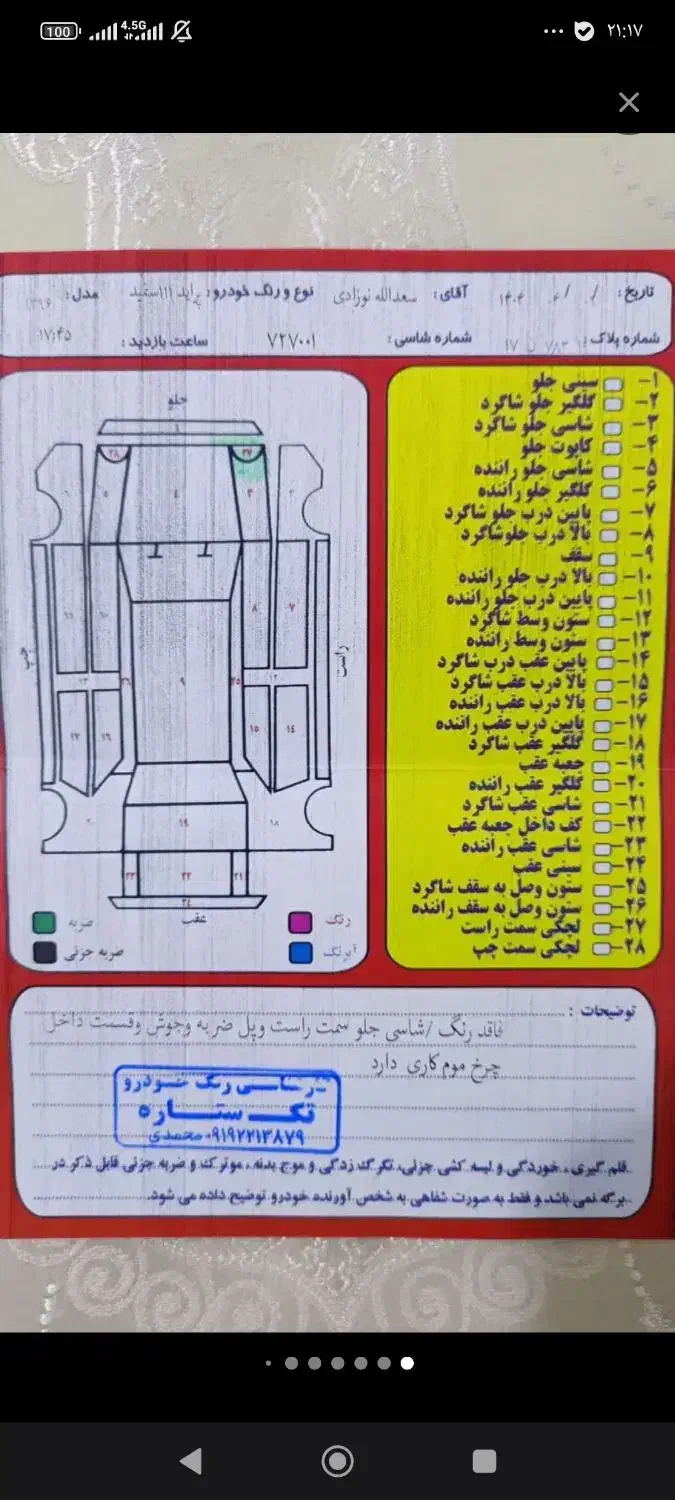 100 4.5G ۲۱:۱۷
تاریخ: / / ۱۴۰۴ آقای: سعدالله نوزادی نوع و رنگ خودرو: پراید ۱۱۱سفید مدل: ۱۳۹۶
شماره پلاک: شماره شاسی: ۷۲۷۰۰۱ ساعت بازدید: ۱۷:۴۵
۱- سینی جلو
۲- گلگیر جلو شاگرد
۳- شاسی جلو شاگرد
۴- کاپوت جلو
۵- شاسی جلو راننده
۶- گلگیر جلو راننده
۷- پایین درب جلو شاگرد
۸- بالا درب جلوشاگرد
۹- سقف
۱۰- بالا درب جلو راننده
۱۱- پایین درب جلو راننده
۱۲- ستون وسط شاگرد
۱۳- ستون وسط راننده
۱۴- پایین عقب درب شاگرد
۱۵- بالا درب عقب شاگرد
۱۶- بالا درب عقب راننده
۱۷- پایین درب عقب راننده
۱۸- گلگیر عقب شاگرد
۱۹- جعبه عقب
۲۰- گلگیر عقب راننده
۲۱- شاسی عقب شاگرد
۲۲- کف داخل جعبه عقب
۲۳- شاسی عقب راننده
۲۴- سینی عقب
۲۵- ستون وصل به سقف شاگرد
۲۶- ستون وصل به سقف راننده
۲۷- لچکی سمت راست
۲۸- لچکی سمت چپ
جلو
۱
۲۷ ۲۸
۲ ۳ ۴ ۵ ۶
۷ ۸ ۱۰ ۱۱
راست چپ
۱۲ ۲۵ ۹ ۲۶ ۱۳
۱۴ ۱۵ ۱۶ ۱۷
۱۸ ۱۹ ۲۰
۲۱ ۲۲ ۲۳
۲۴
عقب
رنگ ضربه
آبرنگ ضربه جزئی
توضیحات:
فاقد رنگ /شاسی جلو سمت راست وپل ضربه وجوش وقسمت داخل
چرخ موم کاری دارد
کارشناسی رنگ خودرو
تک ستاره
۰۹۱۹۲۲۱۳۸۷۹ محمدی
قلم گیری، خوردگی و لیسه کشی جزئی، تگرگ زدگی و موج بدنه، موترک و ضربه جزئی قابل ذکر در
برگه نمی باشد و فقط به صورت شفاهی به شخص آورنده خودرو توضیح داده می شود.